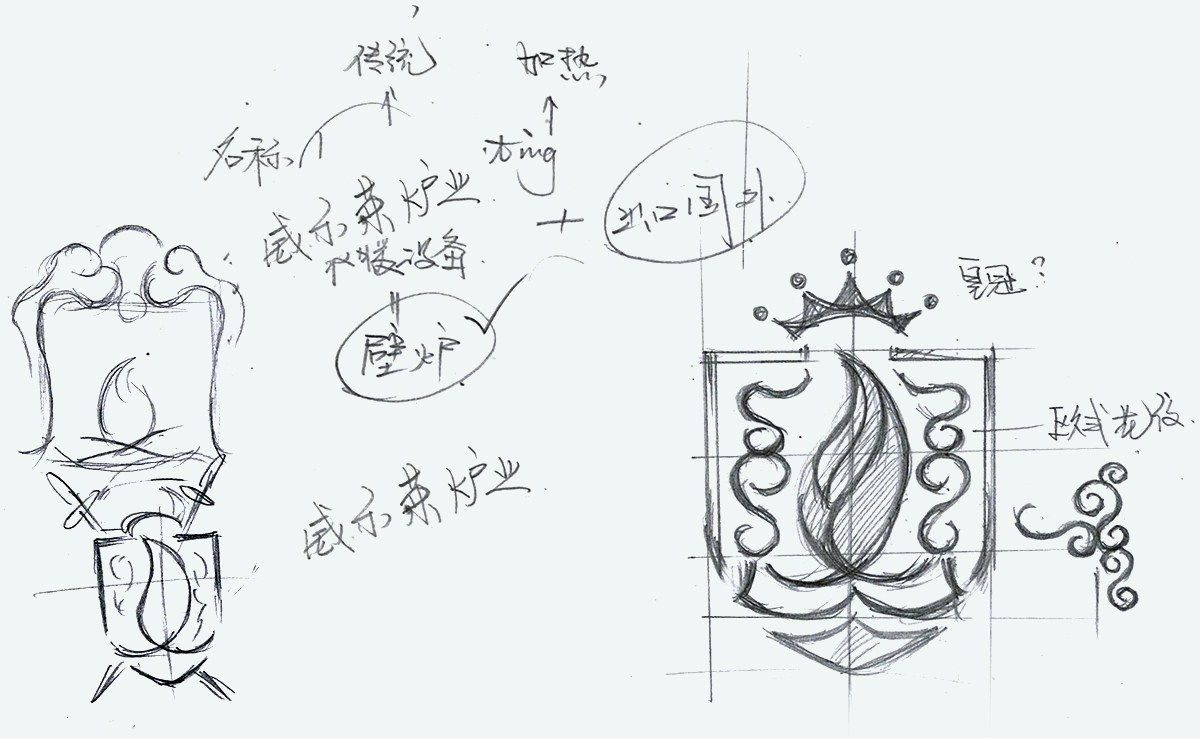 传统
加热
名称
威尔莱炉业
取暖设备
+
出口国外
壁炉
皇冠?
欧式花纹
威尔莱炉业